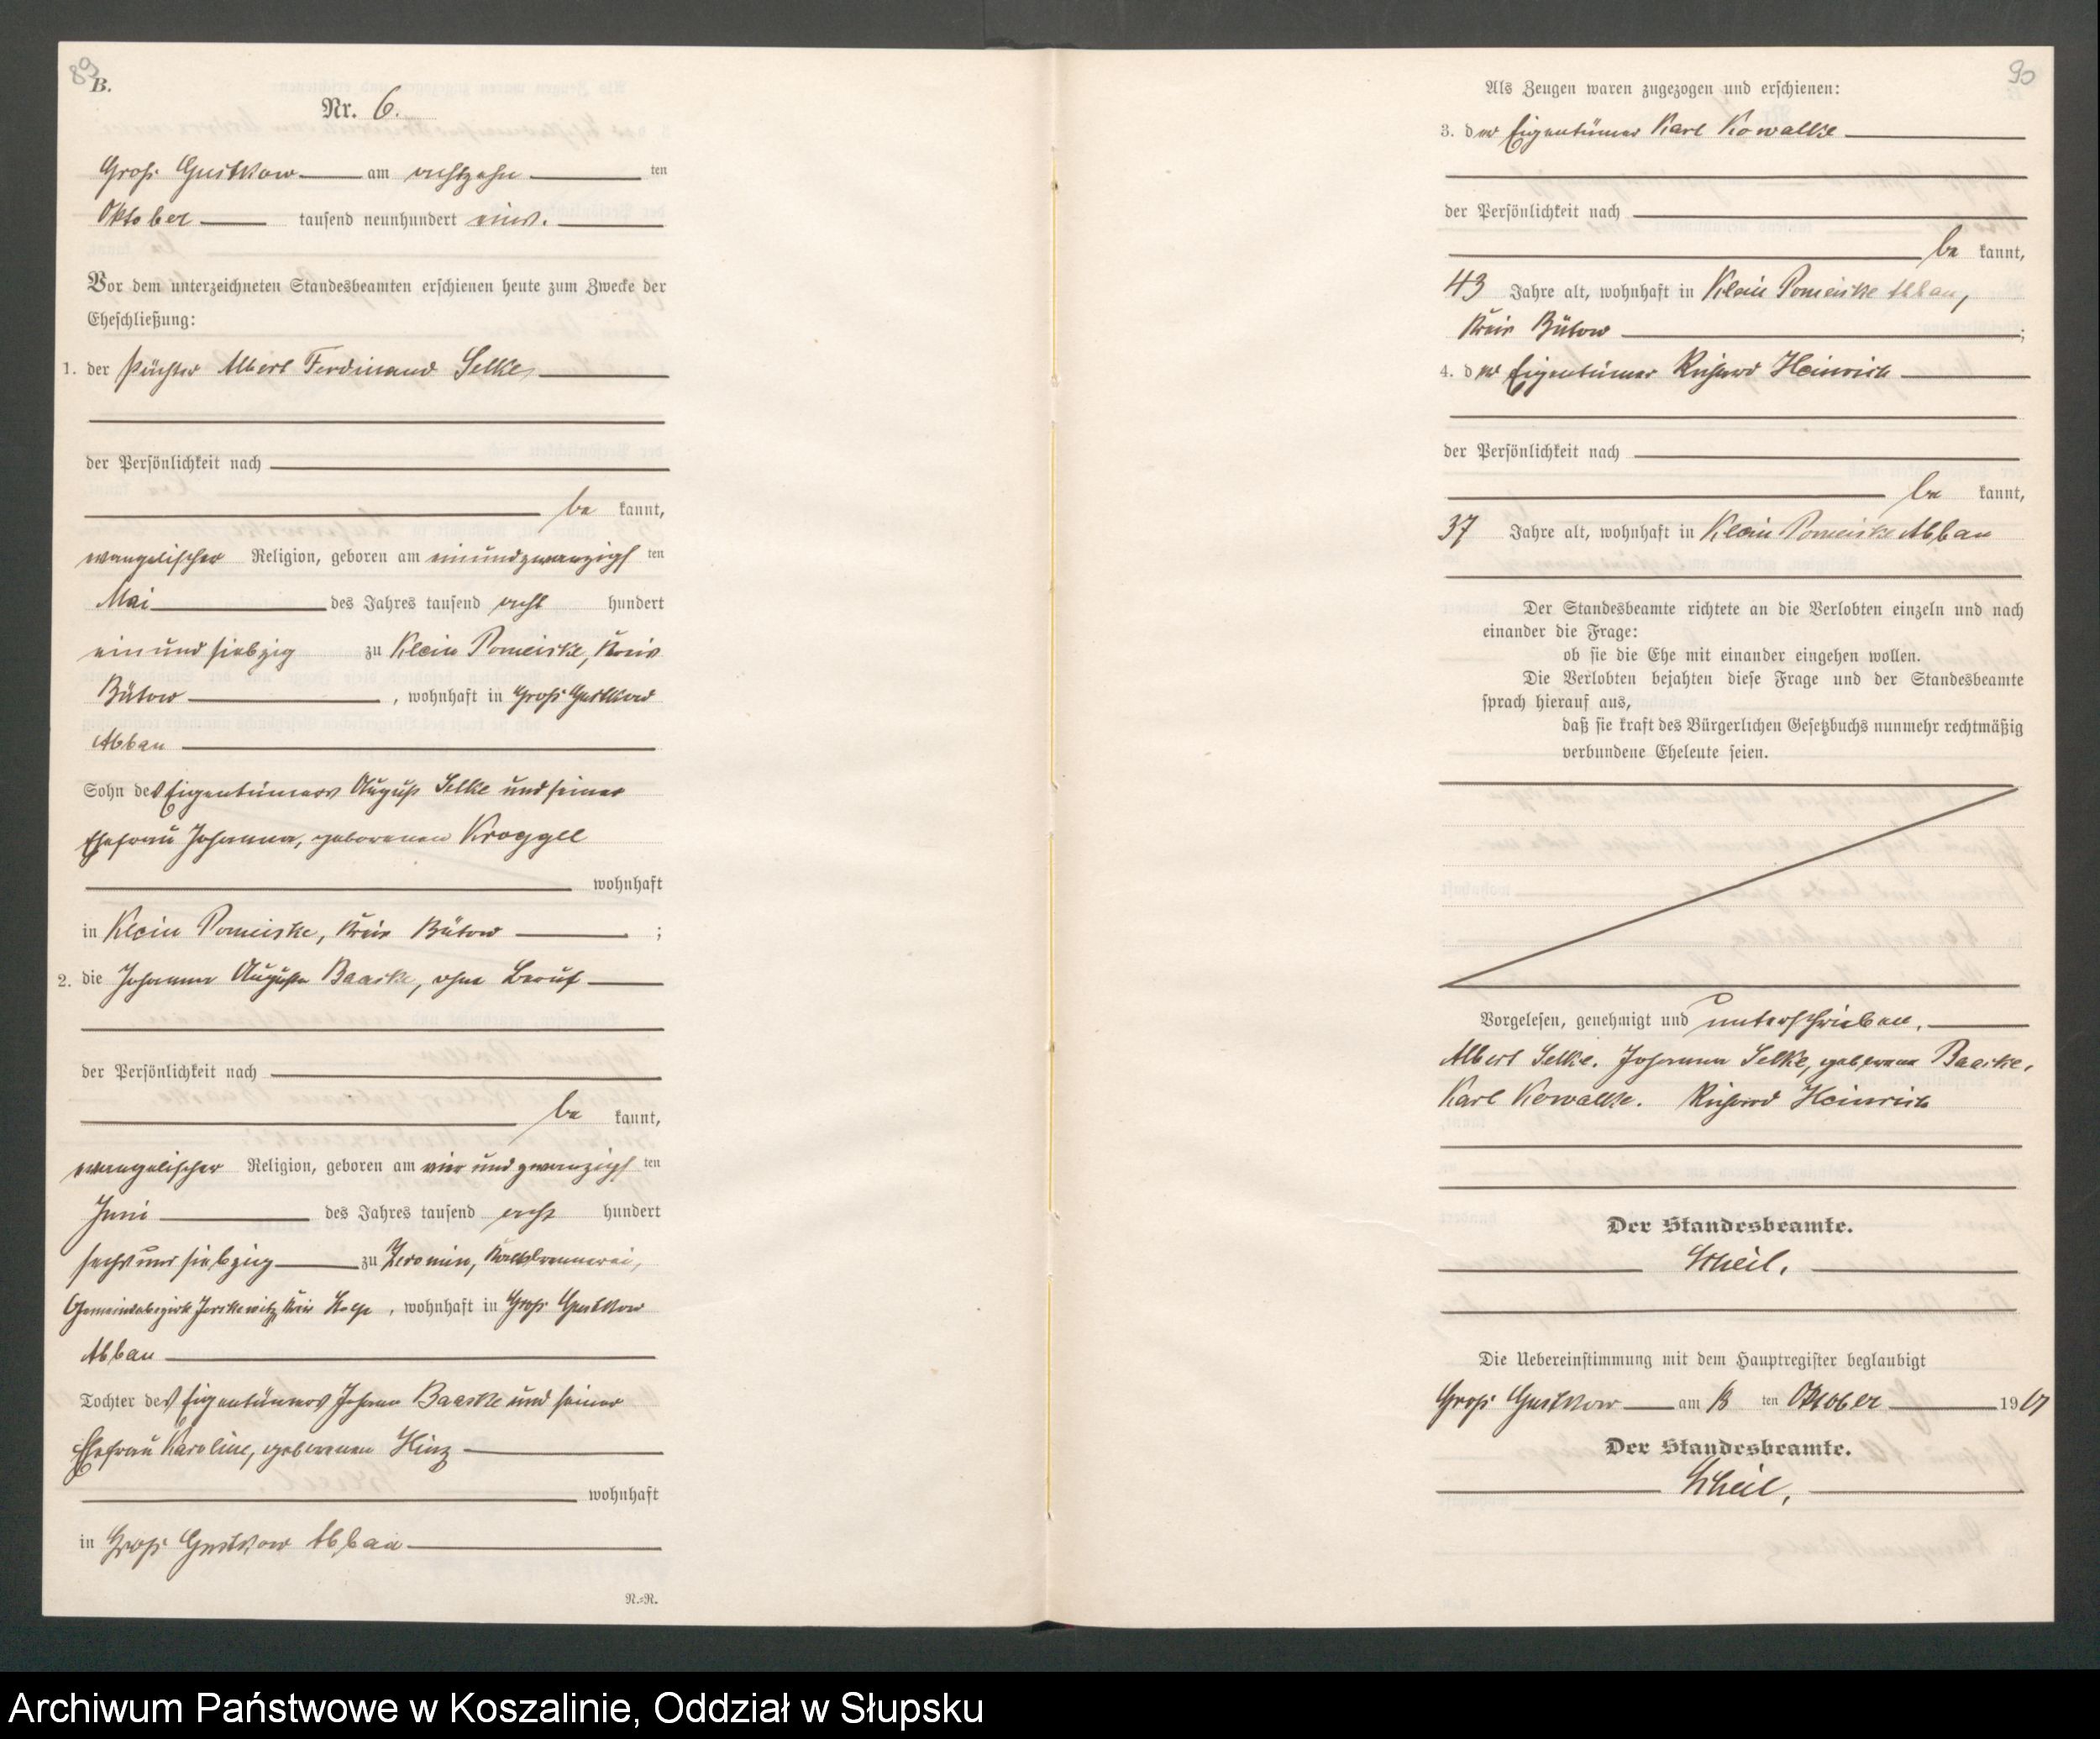 89
B.
Nr. 6.
Groß Gustkow am achtzehn ten
Oktober tausend neunhundert eins.
Vor dem unterzeichneten Standesbeamten erschienen heute zum Zwecke der
Eheschließung:
1. der Pächter Albert Ferdinand Selke,
der Persönlichkeit nach
be kannt,
evangelischer Religion, geboren am einundzwanzigs ten
Mai des Jahres tausend acht hundert
einundsiebzig zu Klein Pomeiske, Kreis
Bütow , wohnhaft in Groß Gustkow
Abbau
Sohn des Eigentümers August Selke und seiner
Ehefrau Johanna, geborenen Kroggel
wohnhaft
in Klein Pomeiske, Kreis Bütow ;
2. die Johanna Auguste Baaske, ohne Beruf
der Persönlichkeit nach
be kannt,
evangelischer Religion, geboren am vierundzwanzigs ten
Juni des Jahres tausend acht hundert
sechsundsiebzig zu Zeromin, Kalkbrennerei,
Gemeindebezirk Jerskewitz, Kreis Stolp , wohnhaft in Groß Gustkow
Abbau
Tochter des Eigentümers Johann Baaske und seiner
Ehefrau Karoline, geborenen Hinz
wohnhaft
in Groß Gustkow Abbau
N.=R.
90
Als Zeugen waren zugezogen und erschienen:
3. der Eigentümer Karl Kowalke
der Persönlichkeit nach
be kannt,
43 Jahre alt, wohnhaft in Klein Pomeiske Abbau,
Kreis Bütow ;
4. der Eigentümer Richard Heinrich
der Persönlichkeit nach
be kannt,
37 Jahre alt, wohnhaft in Klein Pomeiske Abbau
Der Standesbeamte richtete an die Verlobten einzeln und nach
einander die Frage:
ob sie die Ehe mit einander eingehen wollen.
Die Verlobten bejahten diese Frage und der Standesbeamte
sprach hierauf aus,
daß sie kraft des Bürgerlichen Gesetzbuchs nunmehr rechtmäßig
verbundene Eheleute seien.
Vorgelesen, genehmigt und unterschrieben.
Albert Selke. Johanna Selke, geborene Baaske.
Karl Kowalke. Richard Heinrich
Der Standesbeamte.
Scheil.
Die Uebereinstimmung mit dem Hauptregister beglaubigt
Groß Gustkow am 18 ten Oktober 1901
Der Standesbeamte.
Scheil.
Archiwum Państwowe w Koszalinie, Oddział w Słupsku